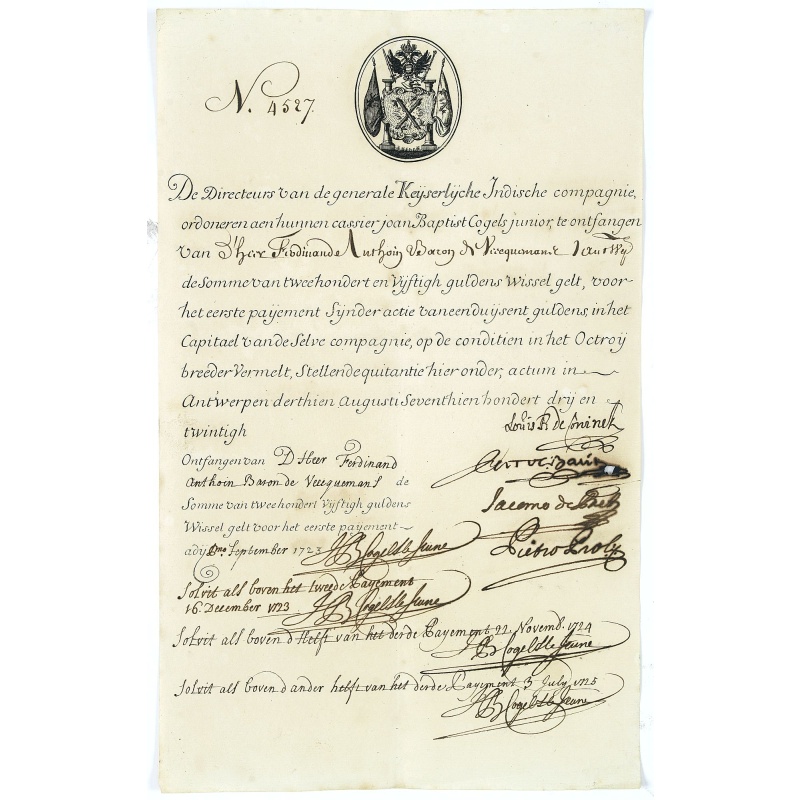 N. 4527.
De Directeurs van de generale Keyserlycke Indische compagnie,
ordoneren aen hunnen cassier joan Baptist Cogels junior, te ontfangen
van D'heer Ferdinande Anthoin Baron de Vecquemans
de Somme van tweehondert en Vijftigh guldens Wissel gelt, voor
het eerste paijement Sijnder actie van eenduijsent guldens, in het
Capitael van de Selve compagnie, op de conditien in het Octroij
breeder Vermelt, Stellende quitantie hier onder, actum in
Antwerpen derthien Augusti Seventhien hondert drij en
twintigh
Louis F. de Coninck
Ontfangen van D Heer Ferdinand
Anthoin Baron de Vecquemans de
Somme van tweehondert Vijftigh guldens
Jacomo de Pret
Wissel gelt voor het eerste payement
Pietro Proli
ady September 1723 JB Cogels le Jeune
Solvit als boven het tweede Payement
16 December 1723 JB Cogels le Jeune
Solvit als boven d'Helft van het derde Payement 22 Novemb. 1724
JB Cogels le Jeune
Solvit als boven d'ander helft van het derde Payement 3 July 1725
JB Cogels le Jeune